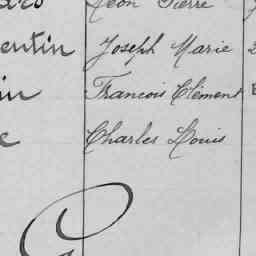 Léon Pierre
entin Joseph Marie
in Francois Clément
e Charles Louis